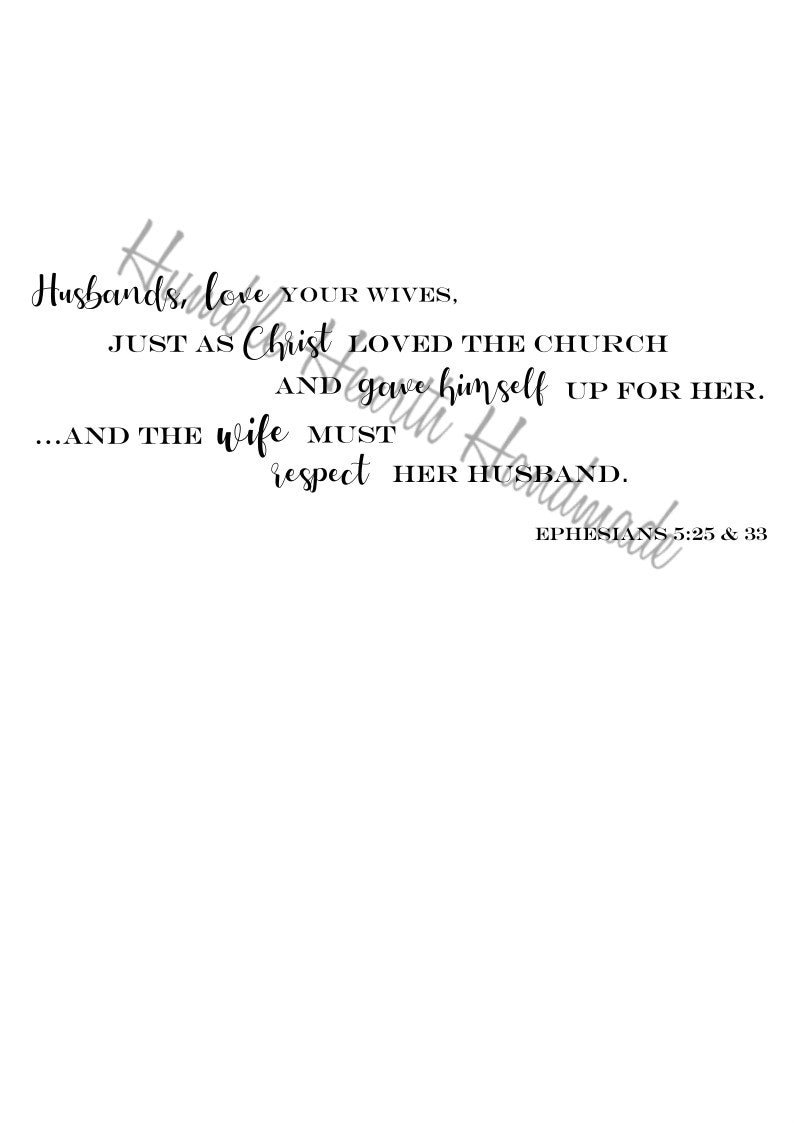 Husbands, love YOUR WIVES,
JUST AS Christ LOVED THE CHURCH
AND gave himself UP FOR HER.
...AND THE wife MUST
respect HER HUSBAND.
EPHESIANS 5:25 & 33
Humble Hearth Handmade